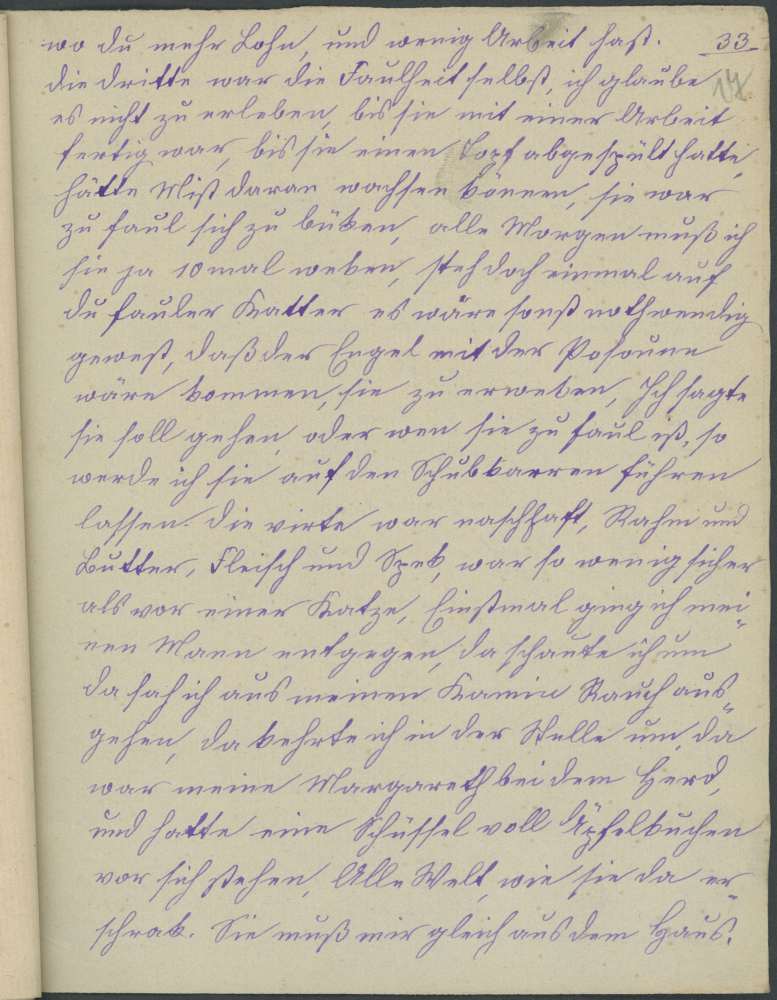 wo du mehr Lohn, und wenig Arbeit hast. 33
die dritte war die Faulheit selbst, ich glaube 17
es nicht zu erleben, bis sie mit einer Arbeit
fertig war, bis sie einen Topf abgespült hatte,
hätte Mist daran wachsen können, sie war
zu faul sich zu büken, alle Morgen muß ich
sie ja 10 mal weken, steh doch einmal auf
du fauler Ratter es wäre sonst nothwendig
gewest, daß der Engel mit der Posoune
wäre kommen, sie zu erweken, Ich sagte
sie soll gehen, oder wen sie zu faul ist, so
werde ich sie auf den Schubkarren führen
lassen. die virte war naschhaft, Rahm und
Butter, Fleisch und Spek, war so wenig sicher
als vor einer Katze, Einstmal ging ich mei„
nen Mann entgegen, da schaute ich um
da sah ich aus meinen Kamin Rauch aus„
gehen, da kehrte ich in der Stelle um, da
war meine Margareth bei dem Herd,
und hatte eine Schüssel voll Äpfelkuchen
vor sich stehen, Alle Welt, wie sie da er„
schrak. Sie muß mir gleich aus dem Haus.